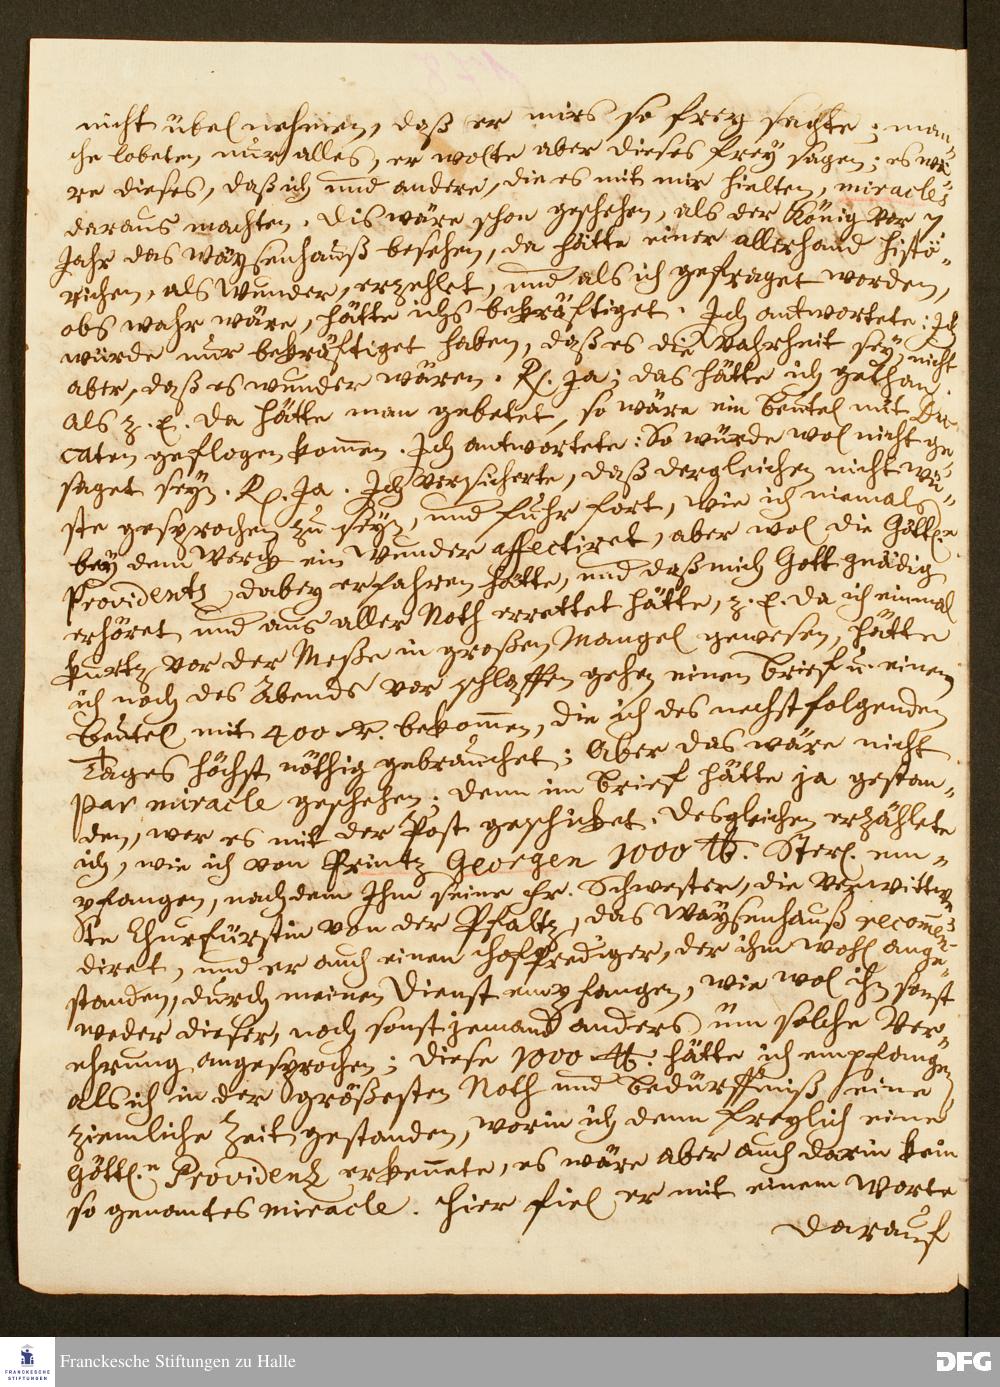 nicht übel nehmen, daß er mirs so frey sagte; man-
che lobeten nur alles, er wolte aber dieses frey sagen; es wä-
re dieses, daß ich und andere, die es mit mir hielten, miracles
daraus machten. Dis wäre schon geschehen, als der König vor 7
Jahr das Wäysenhauß besehen, da hätte einer allerhand histö-
richen, als Wunder, erzehlet, und als ich gefraget worden,
obs wahr wäre, hätte ichs bekräftiget. Ich antwortete: Ich
würde nur bekräftiget haben, daß es die Wahrheit sey, nicht
aber, daß es wunder wären. R. Ja; das hätte ich gethan.
Als z. E. da hätte man gebetet, so wäre ein Beutel mit Du-
caten geflogen kom̄en. Ich antwortete: So würde wol nicht ge-
saget seyn. R. Ja. Ich versicherte, daß dergleichen nicht wü-
ste gesprochen zu seyn, und fuhr fort, wie ich niemals
bey dem Werck ein Wunder affectiret, aber wol die Göttl.n
Providentz dabey erfahren hätte, und daß mich Gott gnädig
erhöret und aus aller Noth errettet hätte, z. E. da ich einmal
kurtz vor der Meße in großen Mangel gewesen, hätte
ich noch des Abends vor schlaffen gehen einen brief u. einen
Beutel mit 400 r. bekom̄en, die ich des nechstfolgenden
Tages höchst nöthig gebrauchet; Aber das wäre nicht
par miracle geschehen; denn im brief hätte ja gestan-
den, wer es mit der Post geschicket. Desgleichen erzählete
ich, wie ich von Printz Georgen 1000 ℔. Sterl. em-
pfangen, nachdem Ihm seine Fr. Schwester, die verwittwe-
ste Churfürstin von der Pfaltz, das Wäysenhauß recom̄en-
diret, und er auch einen Hofprediger, der ihm wohl ange-
standen, durch meinen Dienst empfangen, wie wol ihn sonst
weder dieser, noch sonst jemand anders um solche Ver-
ehrung angesprochen; diese 1000 ℔. hätte ich empfangen,
als ich in der größesten Noth und bedürffniß eine
ziemliche Zeit gestanden, worin ich denn freylich eine
Göttl.n Providentz erken̄ete, es wäre aber auch darin kein
so genantes miracle. Hier fiel er mit einem Worte
darauf
Franckesche Stiftungen zu Halle
FRANCKESCHE
STIFTUNGEN
DFG